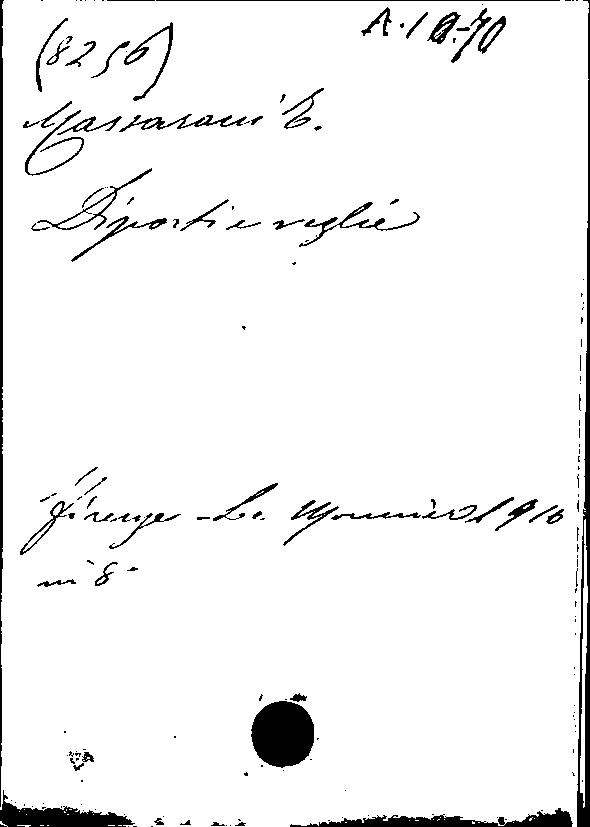 (8256)
A.10.-70
Massarani E.
Diporti e veglie
Firenze - Le Monnier 1910
in 8°